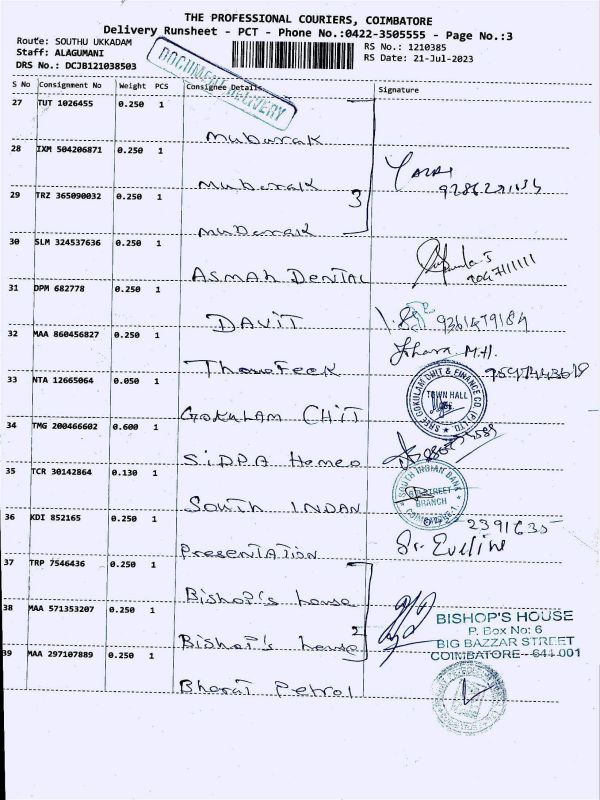 THE PROFESSIONAL COURIERS, COIMBATORE
Delivery Runsheet - PCT - Phone No.:0422-3505555 - Page No.:3
Route: SOUTHU UKKADAM
RS No.: 1210385
Staff: ALAGUMANI
RS Date: 21-Jul-2023
DRS No.: DCJB121038503
DOCUMENT DELIVERY
S No Consignment No Weight PCS Consignee Details Signature
27 TUT 1026455 0.250 1
Mubarak
28 IXM 504206871 0.250 1
Mubarak
29 TRZ 365090032 0.250 1
3
Mubarak
30 SLM 324537636 0.250 1
Asmah Dental
31 DPM 682778 0.250 1
DAVIT 9361479184
32 MAA 860456827 0.250 1
Johara M.H.
Thowfeek
33 NTA 12665064 0.050 1
SREE GOKULAM CHIT & FINANCE CO (P) LTD.
TOWN HALL
GOKULAM CHIT
34 TMG 200466602 0.600 1
SIDDA Homeo
35 TCR 30142864 0.130 1
SOUTH INDIAN BANK
BRANCH
South INDAN
36 KDI 852165 0.250 1
2391635
Sr. Eveline
PresenTATION
37 TRP 7546436 0.250 1
Bishop's house
38 MAA 571353207 0.250 1
BISHOP'S HOUSE
P. Box No: 6
BIG BAZZAR STREET
COIMBATORE - 641 001
2
Bishop's house
39 MAA 297107889 0.250 1
Bharat Petrol